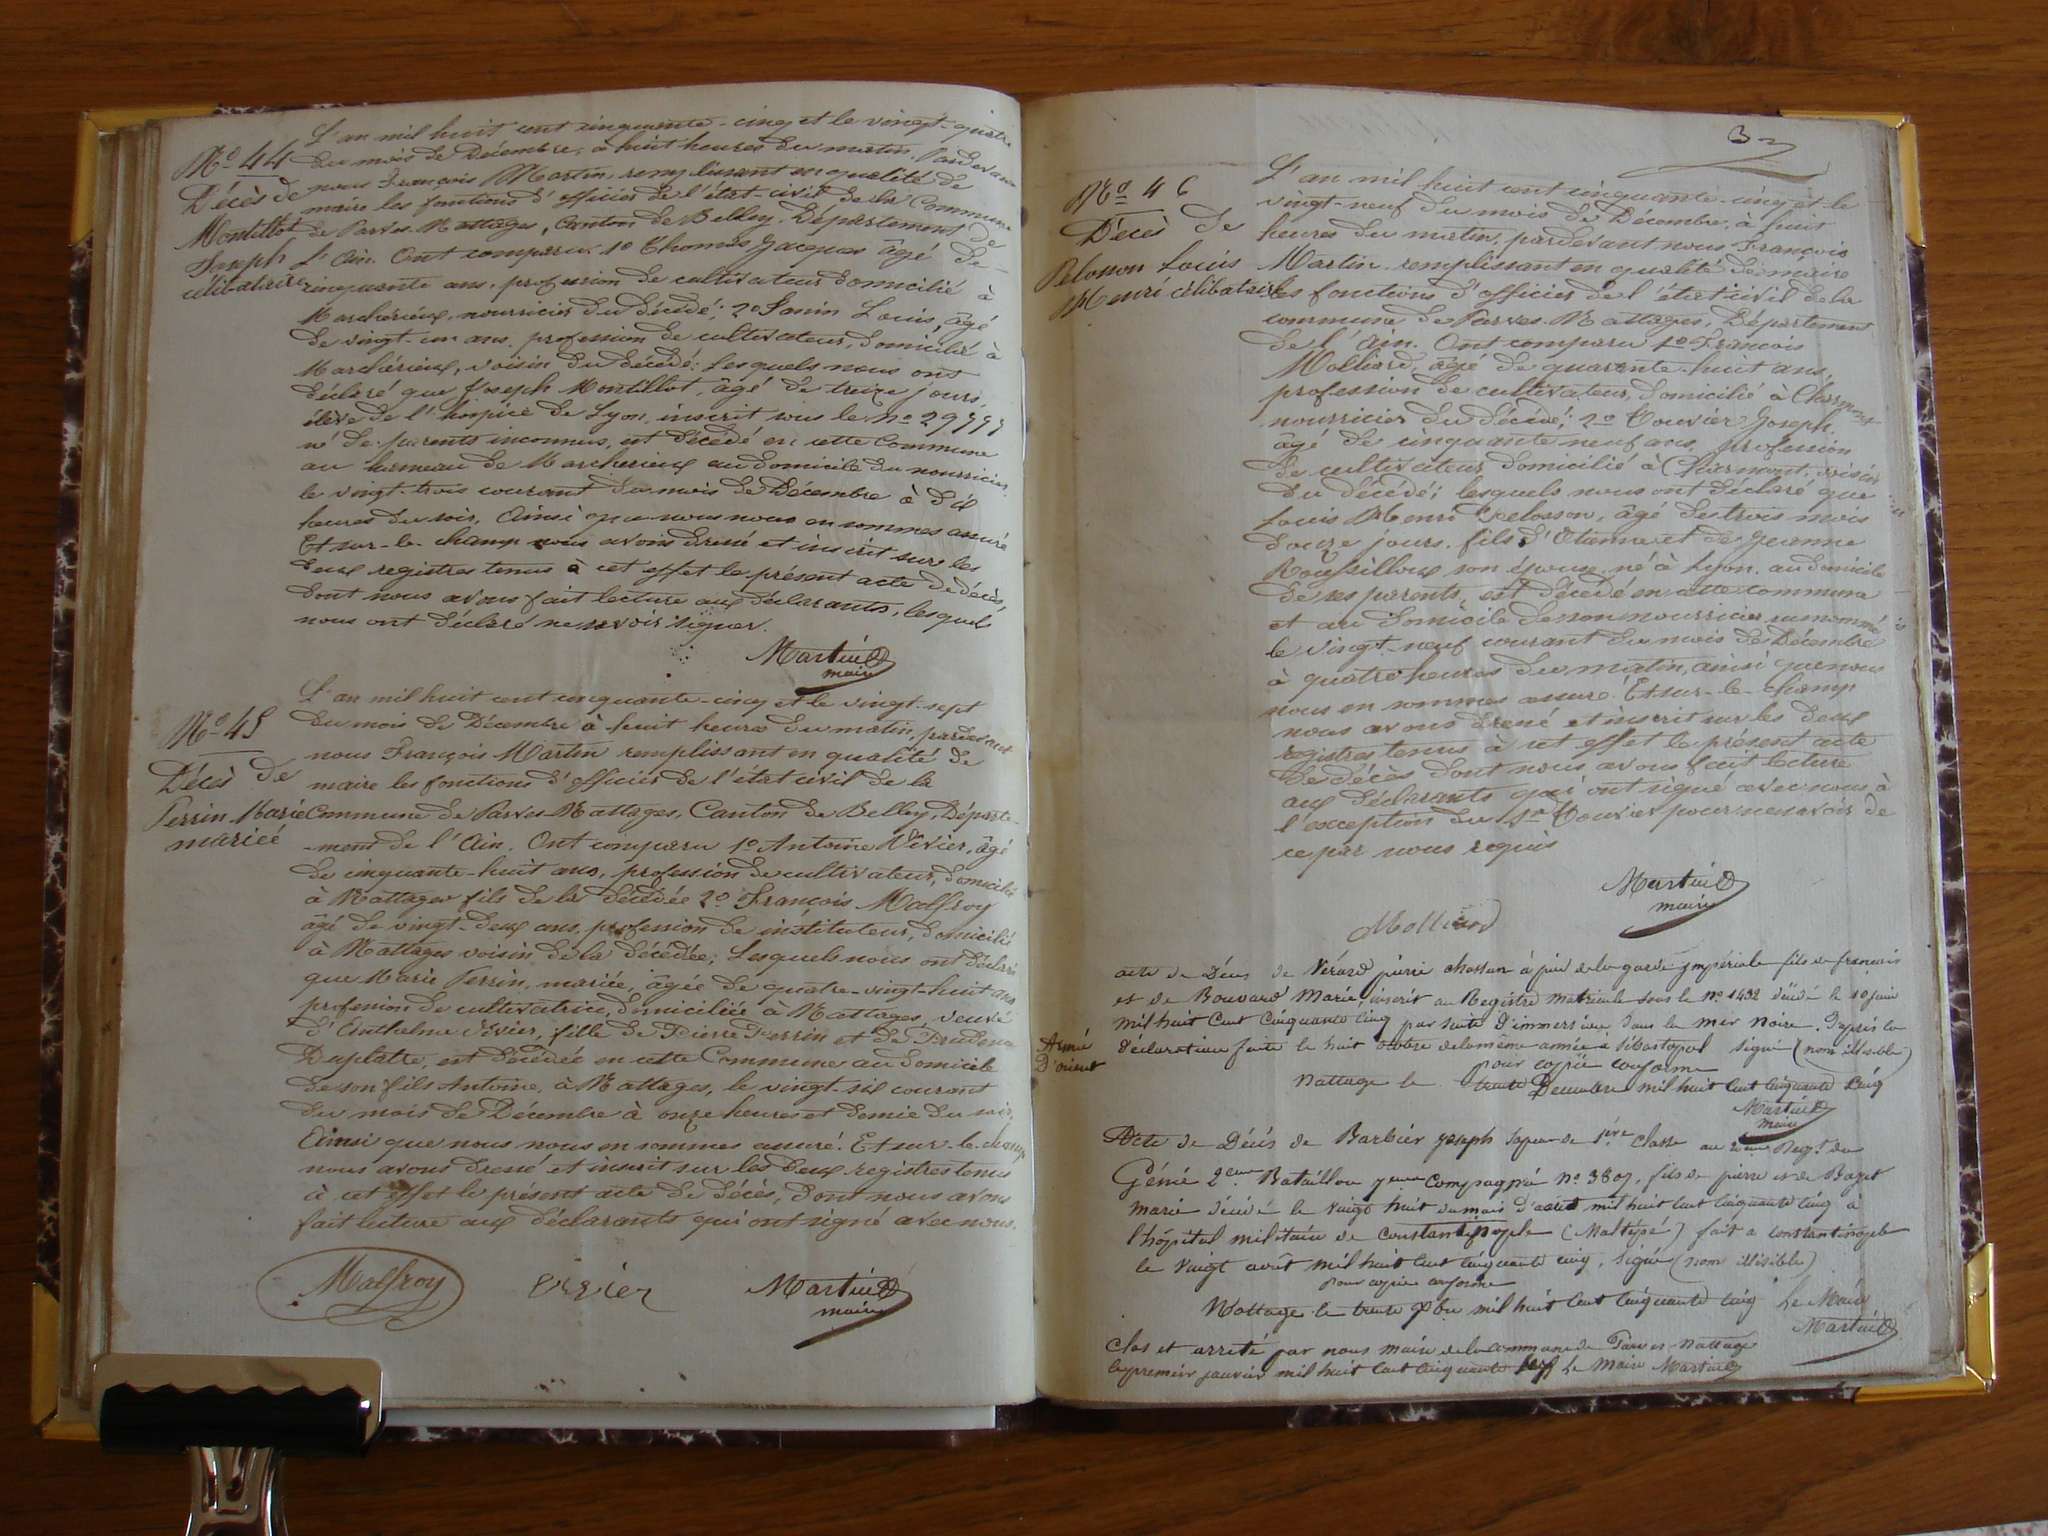 L'an mil huit cent cinquante-cinq et le vingt-quatre
No 44
du mois de Décembre, à huit heures du matin. Pardevant
Décès de
nous François Martin, remplissant en qualité de
maire les fonctions d'officier de l'état-civil de la Commune
Montillot
de Parves-Nattages, Canton de Belley, Département de
Joseph
l'Ain. Ont comparu 1o Thomas Jacques âgé de
célibataire
cinquante ans, profession de cultivateur domicilié à
Marchérieux, nourricier du décédé; 2o Janin Louis, âgé
de vingt-un ans, profession de cultivateur, domicilié à
Marchérieux, voisin du décédé; Lesquels nous ont
déclaré que Joseph Montillot, âgé de treize jours,
élève de l'hospice de Lyon, inscrit sous le no
né de parents inconnus, est décédé en cette Commune
au hameau de Marcherieux au domicile du nourricier,
le vingt-trois courant du mois de Décembre à dix
heures du soir, Ainsi que nous nous en sommes assuré
Et sur-le-champ nous avons dressé et inscrit sur les
deux registres tenus à cet effet le présent acte de décès,
dont nous avons fait lecture aux déclarants, lesquels
nous ont déclaré ne savoir signer.
Martin
maire
L'an mil huit cent cinquante-cinq et le vingt-sept
No 45
du mois de Décembre à huit heures du matin, pardevant
nous François Martin remplissant en qualité de
Décès de
maire les fonctions d'officier de l'état civil de la
Perrin Marie
Commune de Parves-Nattages, Canton de Belley, Départe-
mariée
-ment de l'Ain. Ont comparu 1o Antoine Vévier, âgé
de cinquante-huit ans, profession de cultivateur, domicilié
à Nattages fils de la décédée 2o François Malfroy
âgé de vingt-deux ans, profession de instituteur, domicilié
à Nattages voisin de la décédée; Lesquels nous ont déclaré
que Marie Perrin, mariée, âgée de quatre-vingt-huit ans
profession de cultivatrice, domiciliée à Nattages, veuve
d'Anthelme Vévier, fille de Pierre Perrin et de Prudence
Duplatre, est décédée en cette Commune au domicile
de son fils Antoine, à Nattages, le vingt-six courant
du mois de Décembre à onze heures et demie du soir,
Ainsi que nous nous en sommes assuré. Et sur-le-champ
nous avons dressé et inscrit sur les deux registres tenus
à cet effet le présent acte de décès, dont nous avons
fait lecture aux déclarants qui ont signé avec nous.
Malfroy
Martin
maire
No 46
L'an mil huit cent cinquante-cinq et le
vingt-neuf du mois de Décembre, à huit
Décès de
heures du matin, pardevant nous François
Pelosson Louis
Martin remplissant en qualité de maire
Henri célibataire
les fonctions d'officier de l'état civil de la
commune de Parves-Nattages, Département
de l'Ain. Ont comparu 1o François
Molliard, âgé de quarante-huit ans,
profession de cultivateur, domicilié à Charmont
nourricier du décédé; 2o Touvier Joseph
âgé de cinquante neuf ans, profession
de cultivateur domicilié à Charmont, voisin
du décédé; lesquels nous ont déclaré que
Louis Henri Pelosson, âgé de trois mois
douze jours, fils d'Etienne et de Jeanne
son épouse, né à Lyon, au domicile
de ses parents, est décédé en cette commune
et au domicile de son nourricier susnommé
le vingt-neuf courant du mois de Décembre
à quatre heures du matin, ainsi que nous
nous en sommes assuré. Et sur-le-champ
nous avons dressé et inscrit sur les deux
registres tenus à cet effet le présent acte
de décès dont nous avons fait lecture
aux déclarants qui ont signé avec nous à
l'exception du Touvier pour ne savoir de
ce par nous requis
Martin
maire
Molliard
acte de Décès de Vérard pierre chasseur à pied de la garde impériale fils de françois
et de Bouvard Marie, inscrit au Registre matricule sous le no 1432 décédé le 10 juin
mil huit Cent Cinquante Cinq par suite d'immersion dans la mer noire. D'après la
Armée
D'orient
Déclaration faite le huit octobre de la même année à Sébastopol signé (nom illisible)
pour copie conforme
Nattage le trente Decembre mil huit Cent Cinquante Cinq
Martin
Maire
Acte de Décès de Barbier joseph Sapeur de 1ère Classe au Regt. du
Génie 2eme Bataillon 7eme Compagnie no 3807, fils de pierre et de Bozet
Marie décédé le vingt huit du mois d'août mil huit Cent Cinquante Cinq à
l'hôpital militaire de Constantinople (Maltépé) fait a constantinople
le vingt août mil huit Cent Cinquante Cinq, signé (nom illisible)
pour copie conforme
Nattage le trente Xbre mil huit Cent Cinquante Cinq Le Maire
Martin
Clos et arrêté par nous maire de la commune de Parves-Nattage
le premier janvier mil huit Cent Cinquante Le Maire Martin